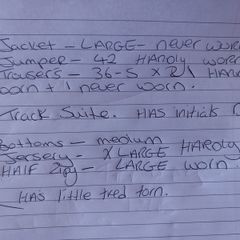 Jacket - LARGE - never worn
Jumper - 42 HARDly worn
Trousers - 36-S X 2/1 HARD
worn + 1 never worn.
Track Suite. HAS initials
Bottoms - medium
Jersery - X LARGE HARDly
HAlF Zip - LARGE worn
HAS little tred torn.